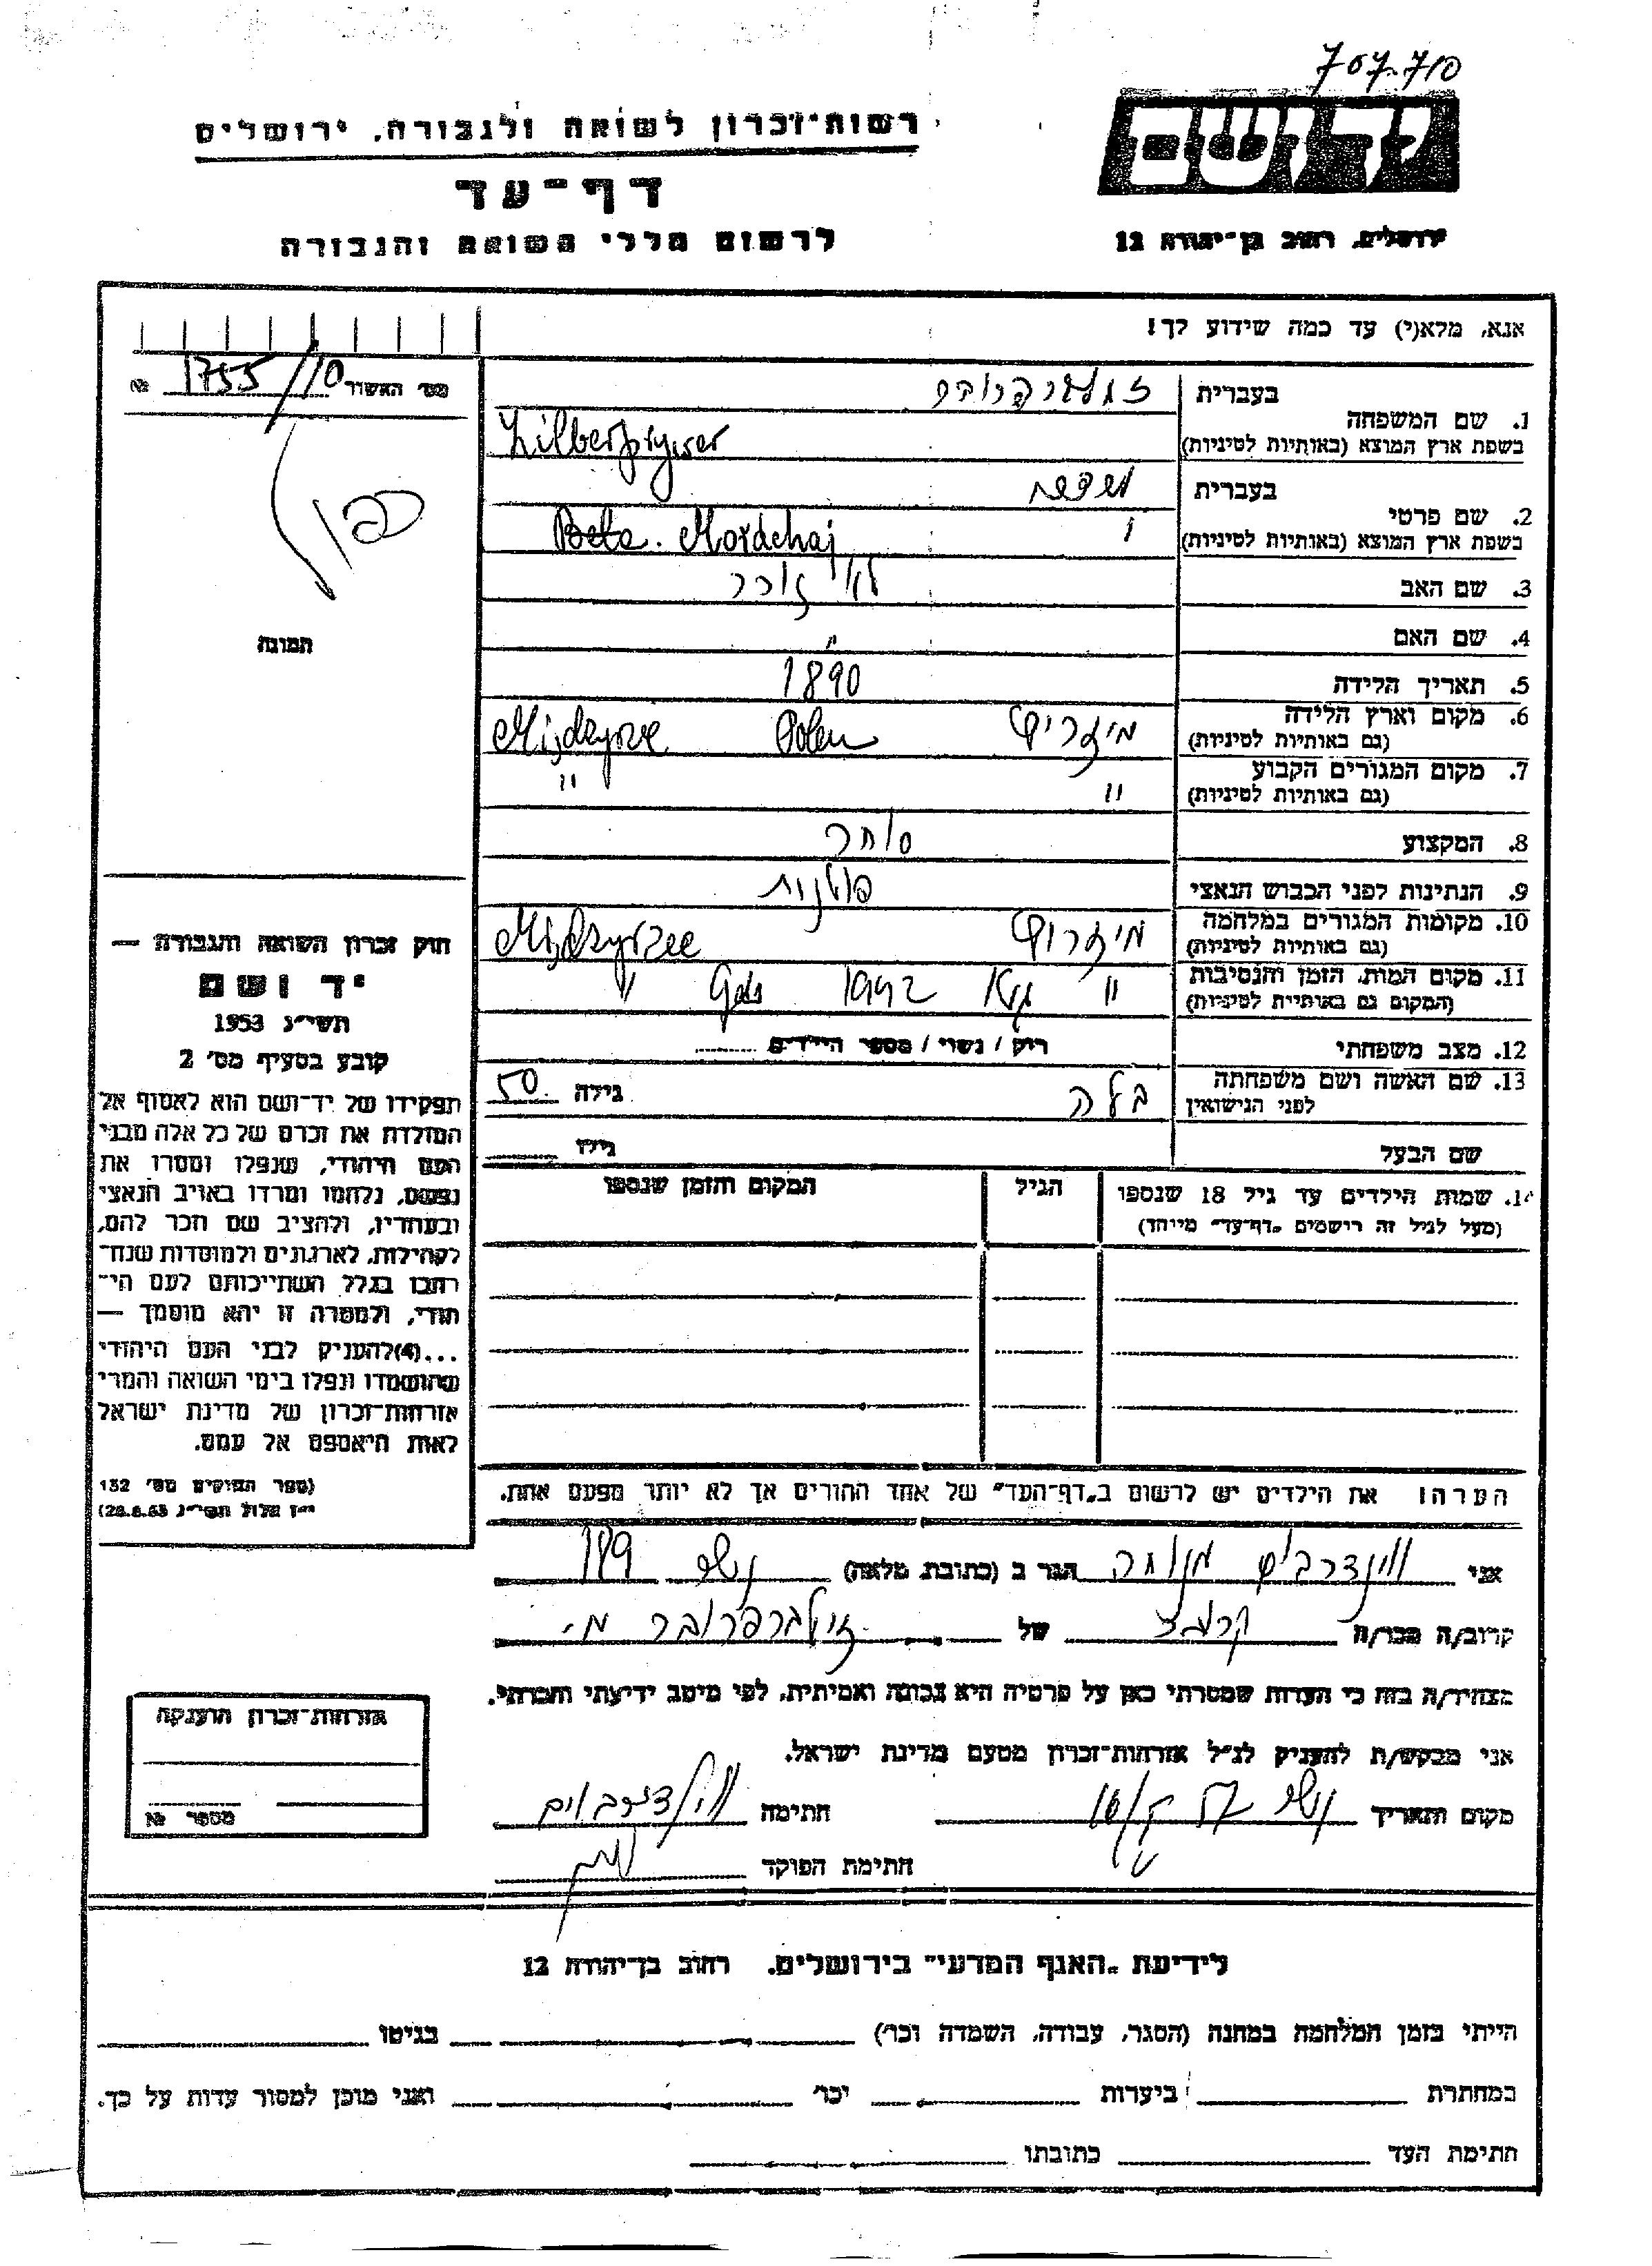 707.710
יד ושם
ירושלים, רחוב בן־יהודה 12
רשות־זכרון לשואה ולגבורה, ירושלים
דף־עד
לרשום חללי השואה והגבורה
אנא, מלא(י) עד כמה שידוע לך!
מס׳ האשור 1755/10 №
תמונה
1. שם המשפחה
בעברית
בשפת ארץ המוצא (באותיות לטיניות) Zilberfrywer
2. שם פרטי
בעברית
בשפת ארץ המוצא (באותיות לטיניות) Bela. Mordchaj
3. שם האב לא זוכר
4. שם האם "
5. תאריך הלידה 1890
6. מקום וארץ הלידה
(גם באותיות לטיניות) מיזריץ Polen Mijdzyrze
7. מקום המגורים הקבוע
(גם באותיות לטיניות) " "
8. המקצוע סוחר
9. הנתינות לפני הכבוש הנאצי פולנית
10. מקומות המגורים במלחמה
(גם באותיות לטיניות) מיזריץ Mijdzyrzee
11. מקום המות, הזמן והנסיבות
(המקום גם באותיות לטיניות) " 1942 "
12. מצב משפחתי רוק / נשוי / מספר הילדים
13. שם האשה ושם משפחתה
לפני הנישואין בלה גילה 50
שם הבעל גילו
14. שמות הילדים עד גיל 18 שנספו
(מעל לגיל זה רישמים „דף־עד" מייוחד)
הגיל
המקום והזמן שנספו
הערה! את הילדים יש לרשום ב„דף־העד" של אחד ההורים אך לא יותר מפעם אחת.
חוק זכרון השואה והגבורה —
יד ושם
תשי״ג 1953
קובע בסעיף מס׳ 2
תפקידו של יד־ושם הוא לאסוף אל
המולדת את זכרם של כל אלה מבני
העם היהודי, שנפלו ומסרו את
נפשם, נלחמו ומרדו באויב הנאצי
ובעוזריו, ולהציב שם וזכר להם,
לקהילות, לארגונים ולמוסדות שנח־
רהבו בגלל השתייכותם לעם הי־
הודי, ולמטרה זו יהא מוסמך —
...(4)להעניק לבני העם היהודי
שהושמדו ונפלו בימי השואה והמרי
אזרחות־זכרון של מדינת ישראל
לאות היאספם אל עמם.
(ספר החוקים מס׳ 132
י״ז אלול תשי״ג 28.8.53)
אני מנוחה הגר ב (כתובת מלאה) 189
קרוב/ה מכר/ה של זילברפרובר מ.
מצהיר/ה בזה כי העדות שמסרתי כאן על פרטיה היא נכונה ואמיתית, לפי מיטב ידיעתי והכרתי.
אני מבקש/ת להעניק לנ״ל אזרחות־זכרון מטעם מדינת ישראל.
מקום ותאריך חתימה
חתימת הפוקד
אזרחות־זכרון הוענקה
מספר №
לידיעת „האגף המדעי" בירושלים, רחוב בן־יהודה 12
הייתי בזמן המלחמה במחנה (הסגר, עבודה, השמדה וכו׳) בגיטו
במחתרת ביערות וכו׳ ואני מוכן למסור עדות על כך.
חתימת העד כתובתו